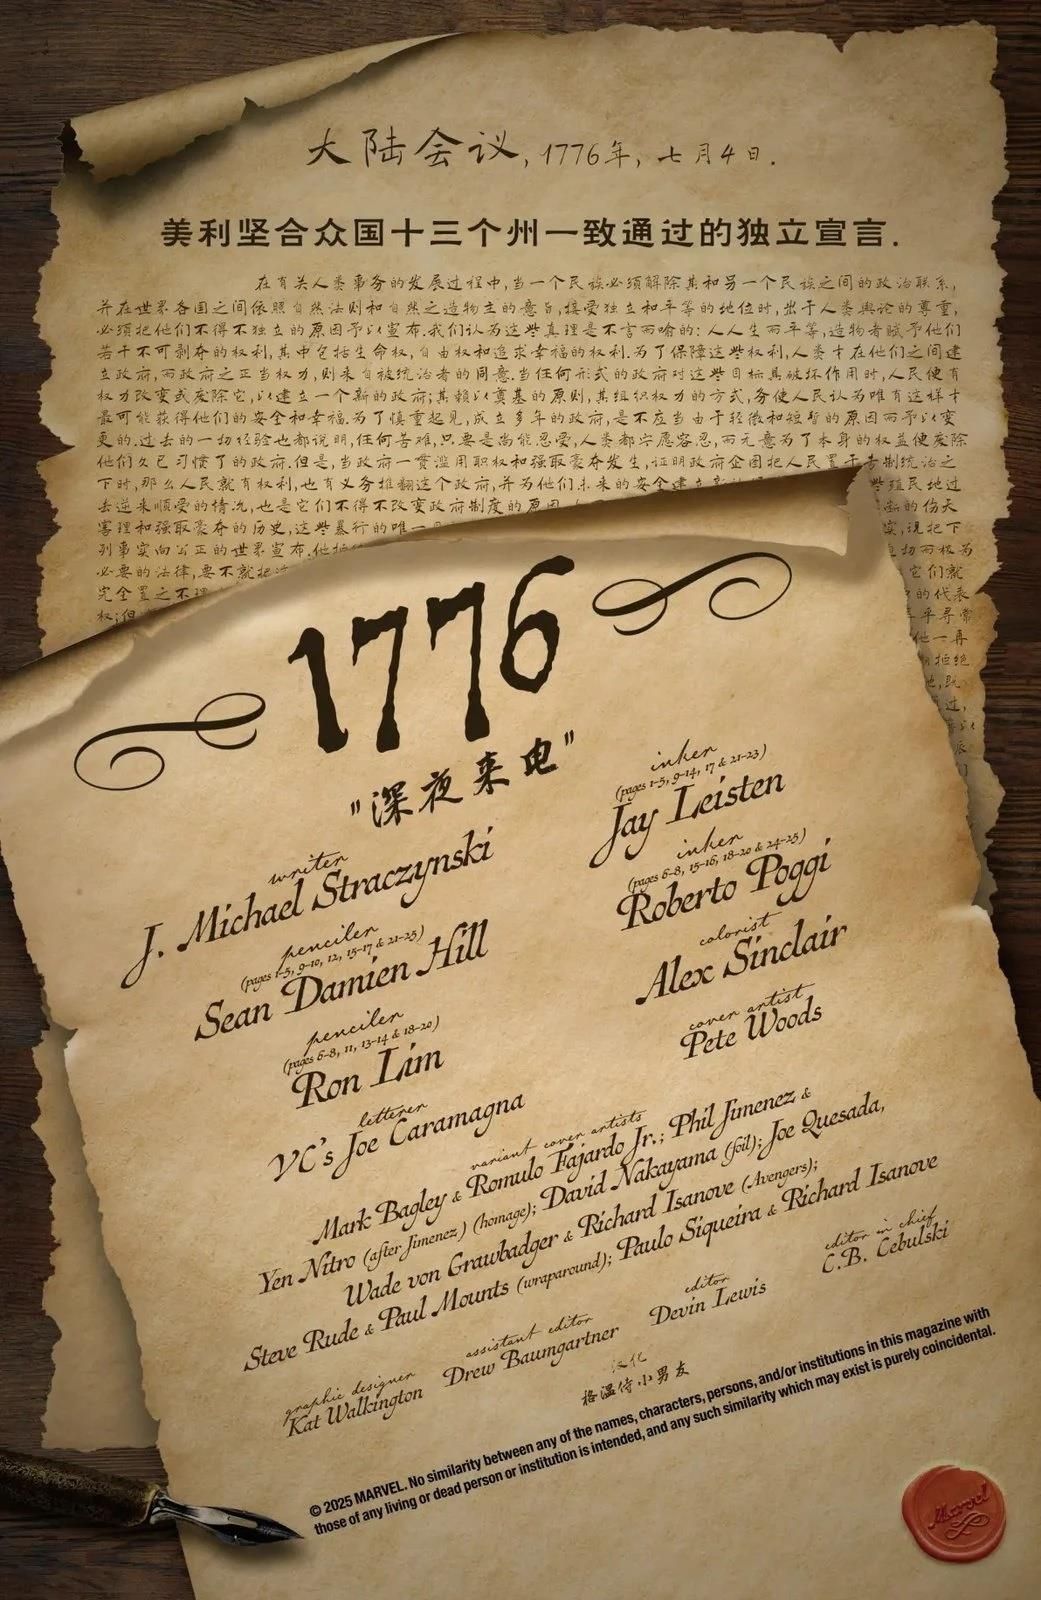 大陆会议, 1776年, 七月4日.
美利坚合众国十三个州一致通过的独立宣言.
在有关人类事务的发展过程中,当一个民族必须解除其和另一个民族之间的政治联系,
并在世界各国之间依照自然法则和自然之造物主的意旨,接受独立和平等的地位时,出于人类舆论的尊重,
必须把他们不得不独立的原因予以宣布.我们认为这些真理是不言而喻的: 人人生而平等,造物者赋予他们
若干不可剥夺的权利,其中包括生命权,自由权和追求幸福的权利.为了保障这些权利,人类才在他们之间建
立政府,而政府之正当权力,则来自被统治者的同意.当任何形式的政府对这些目标具破坏作用时,人民便有
权力改变或废除它,以建立一个新的政府;其赖以奠基的原则,其组织权力的方式,务使人民认为唯有这样才
最可能获得他们的安全和幸福.为了慎重起见,成立多年的政府,是不应当由于轻微和短暂的原因而予以变
更的.过去的一切经验也都说明,任何苦难,只要是尚能忍受,人类都宁愿容忍,而无意为了本身的权益便废除
他们久已习惯了的政府.但是,当政府一贯滥用职权和强取豪夺发生,证明政府企图把人民置于专制统治之
下时,那么人民就有权利,也有义务推翻这个政府,并为他们未来的安全建立 些殖民地过
去逆来顺受的情况,也是它们不得不改变政府制度的原因 的伤天
害理和强取豪夺的历史,这些暴行的唯一 实,说把下
列事实向公正的世界宣布.他拒 切而极为
必要的法律,要不就把 它们就
完全置之不理 的代表
权;但 平寻常
他一再
拒绝
也,既
过,
以
1776
"深夜来电"
writer
J. Michael Straczynski
penciler
(pages 1-5, 9-10, 12, 15-17 & 21-25)
Sean Damien Hill
penciler
(pages 6-8, 11, 13-14 & 18-20)
Ron Lim
letterer
VC's Joe Caramagna
inker
(pages 1-5, 9-14, 17 & 21-23)
Jay Leisten
inker
(pages 6-8, 15-16, 18-20 & 24-25)
Roberto Poggi
colorist
Alex Sinclair
cover artist
Pete Woods
variant cover artists
Mark Bagley & Romulo Fajardo Jr.; Phil Jimenez &
Yen Nitro (after Jimenez) (homage); David Nakayama (foil); Joe Quesada,
Wade von Grawbadger & Richard Isanove (Avengers);
Steve Rude & Paul Mounts (wraparound); Paulo Siqueira & Richard Isanove
graphic designer
Kat Walkington
assistant editor
Drew Baumgartner
editor
Devin Lewis
editor in chief
C.B. Cebulski
汉化
格温侍小男友
© 2025 MARVEL. No similarity between any of the names, characters, persons, and/or institutions in this magazine with
those of any living or dead person or institution is intended, and any such similarity which may exist is purely coincidental.
Marvel